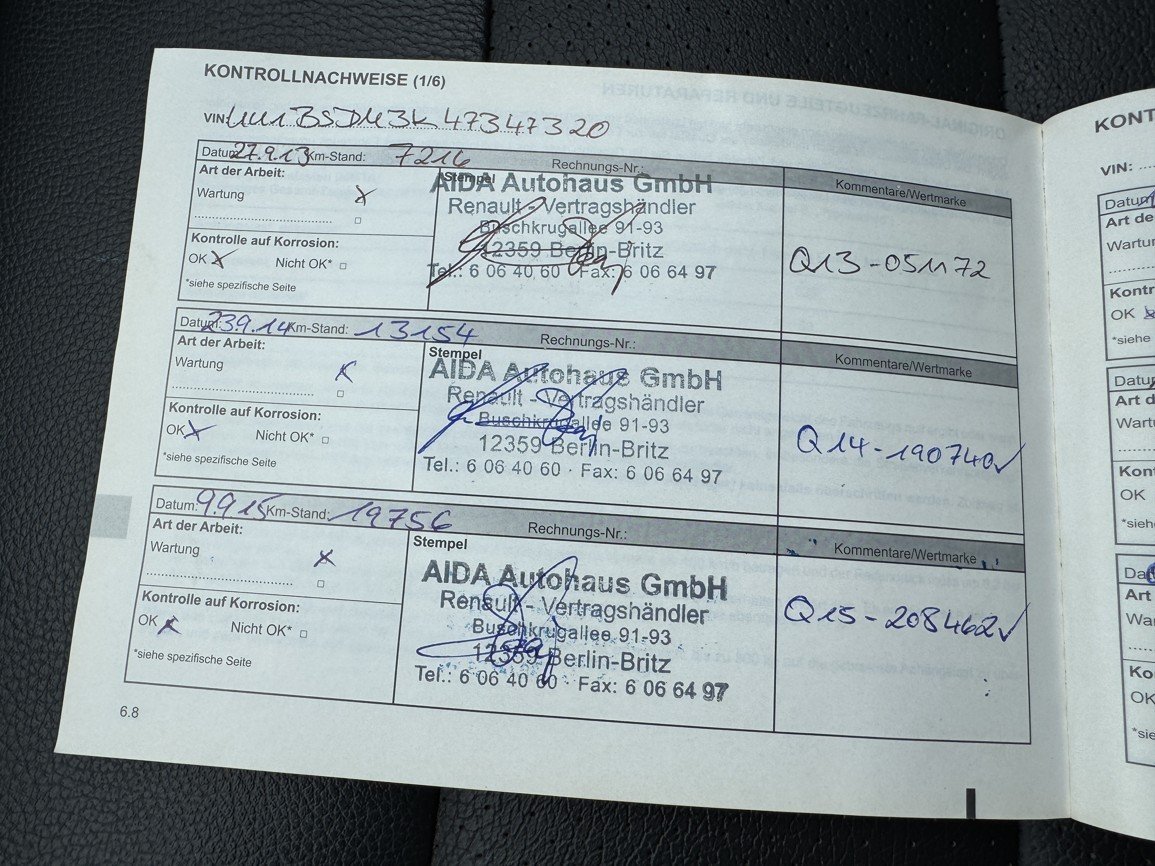 KONTROLLNACHWEISE (1/6)
VIN:
Datum: 27.9.13 Km-Stand: 7216 Rechnungs-Nr.: Kommentare/Wertmarke
Art der Arbeit: Stempel
Wartung X
Kontrolle auf Korrosion:
OK X Nicht OK* □
*siehe spezifische Seite
AIDA Autohaus GmbH
Renault - Vertragshändler
Buschkrugallee 91-93
12359 Berlin-Britz
Tel.: 6 06 40 60 · Fax: 6 06 64 97
Q13-051172
Datum: 23.9.14 Km-Stand: 13154 Rechnungs-Nr.: Kommentare/Wertmarke
Art der Arbeit: Stempel
Wartung X
Kontrolle auf Korrosion:
OK X Nicht OK* □
*siehe spezifische Seite
AIDA Autohaus GmbH
Renault - Vertragshändler
Buschkrugallee 91-93
12359 Berlin-Britz
Tel.: 6 06 40 60 · Fax: 6 06 64 97
Q14-190740✓
Datum: 9.9.15 Km-Stand: 19756 Rechnungs-Nr.: Kommentare/Wertmarke
Art der Arbeit: Stempel
Wartung X
Kontrolle auf Korrosion:
OK X Nicht OK* □
*siehe spezifische Seite
AIDA Autohaus GmbH
Renault - Vertragshändler
Buschkrugallee 91-93
12359 Berlin-Britz
Tel.: 6 06 40 60 · Fax: 6 06 64 97
Q15-208462✓
6.8
KONT
VIN:
Datum
Art de
Wartu
Kontr
OK
*siehe
Datu
Art d
Wart
Kon
OK
*sieh
Da
Art
Wa
Ko
OK
*sie